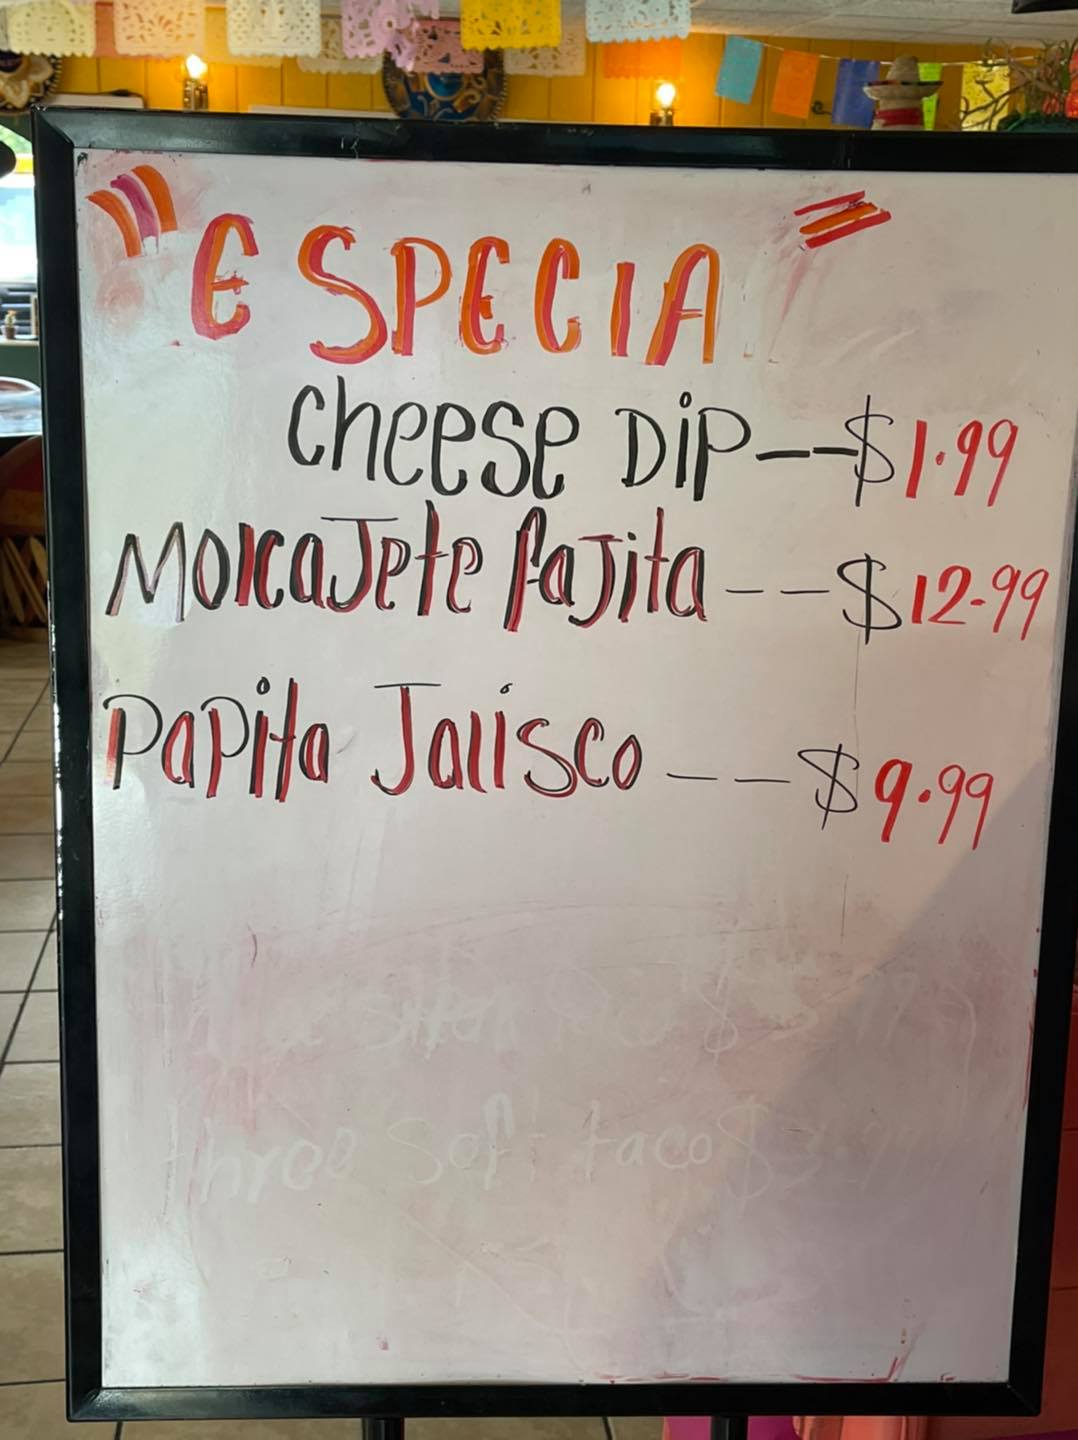 "ESPECIA"
Cheese Dip--$1.99
Molcajete fajita---$12.99
Papita Jalisco---$9.99
three soft taco $3.99